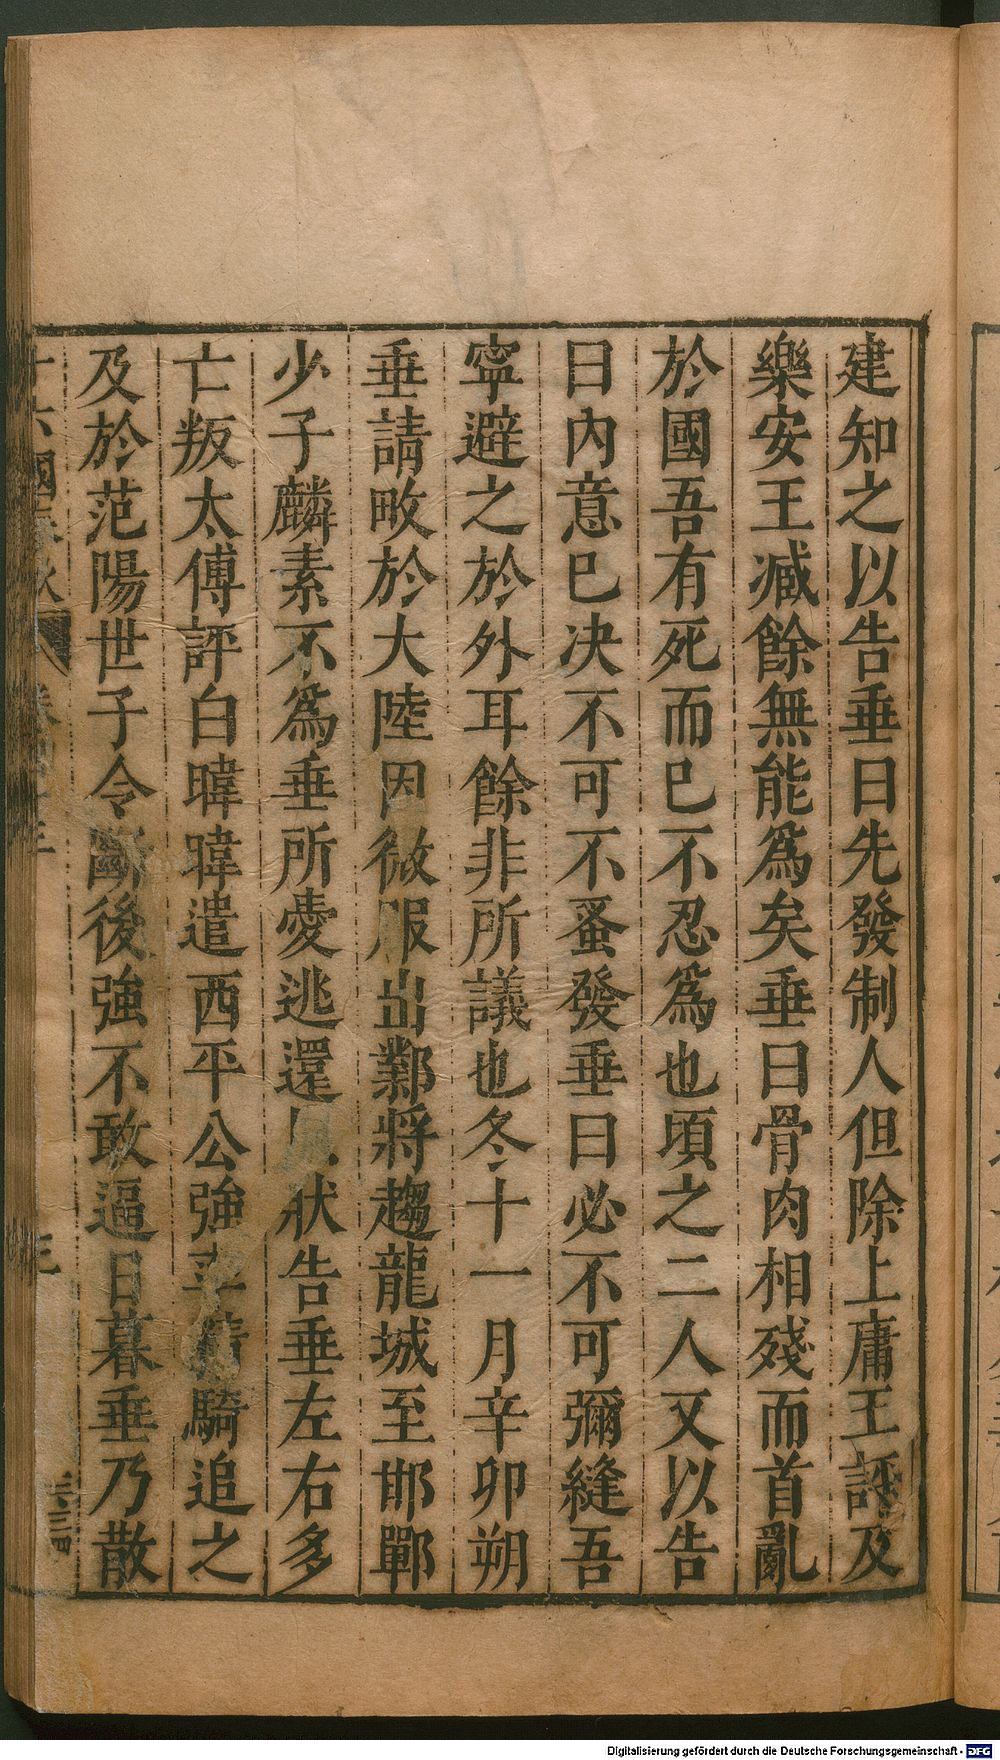 建知之以告垂曰先發制人但除上庸王評及
樂安王臧餘無能爲矣垂曰骨肉相殘而首亂
於國吾有死而巳不忍爲也頃之二人又以告
曰内意巳决不可不蚤發垂曰必不可彌縫吾
寧避之於外耳餘非所議也冬十一月辛卯朔
垂請畋於大陸因微服出鄴將趨龍城至邯鄲
少子麟素不爲垂所愛逃還狀告垂左右多
亡叛太傅評白暐暐遣西平公強率精騎追之
及於范陽世子令斷後強不敢逼日暮垂乃散
十六國春秋
三
Digitalisierung gefördert durch die Deutsche Forschungsgemeinschaft - DFG